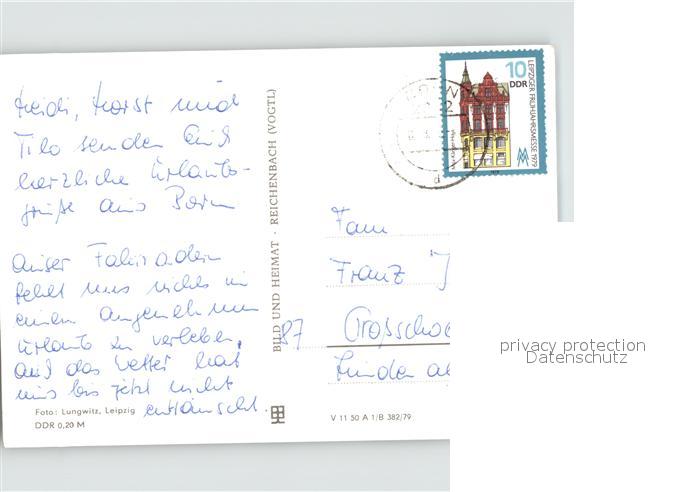 Heidi, Horst und
Tilo senden Euch
herzliche Urlaubs-
grüße aus Born
außer Fahrrädern
fehlt uns nichts um
einen angenehmen
Urlaub zu verleben,
auch das Wetter hat
uns bis jetzt nicht
enttäuscht.
Foto: Lungwitz, Leipzig
DDR 0,20 M
BILD UND HEIMAT · REICHENBACH (VOGTL)
V 11 50 A 1/B 382/79
10
DDR
LEIPZIGER FRÜHJAHRSMESSE 1979
Fam
Franz
87
Großscho
Linden
privacy protection
Datenschutz